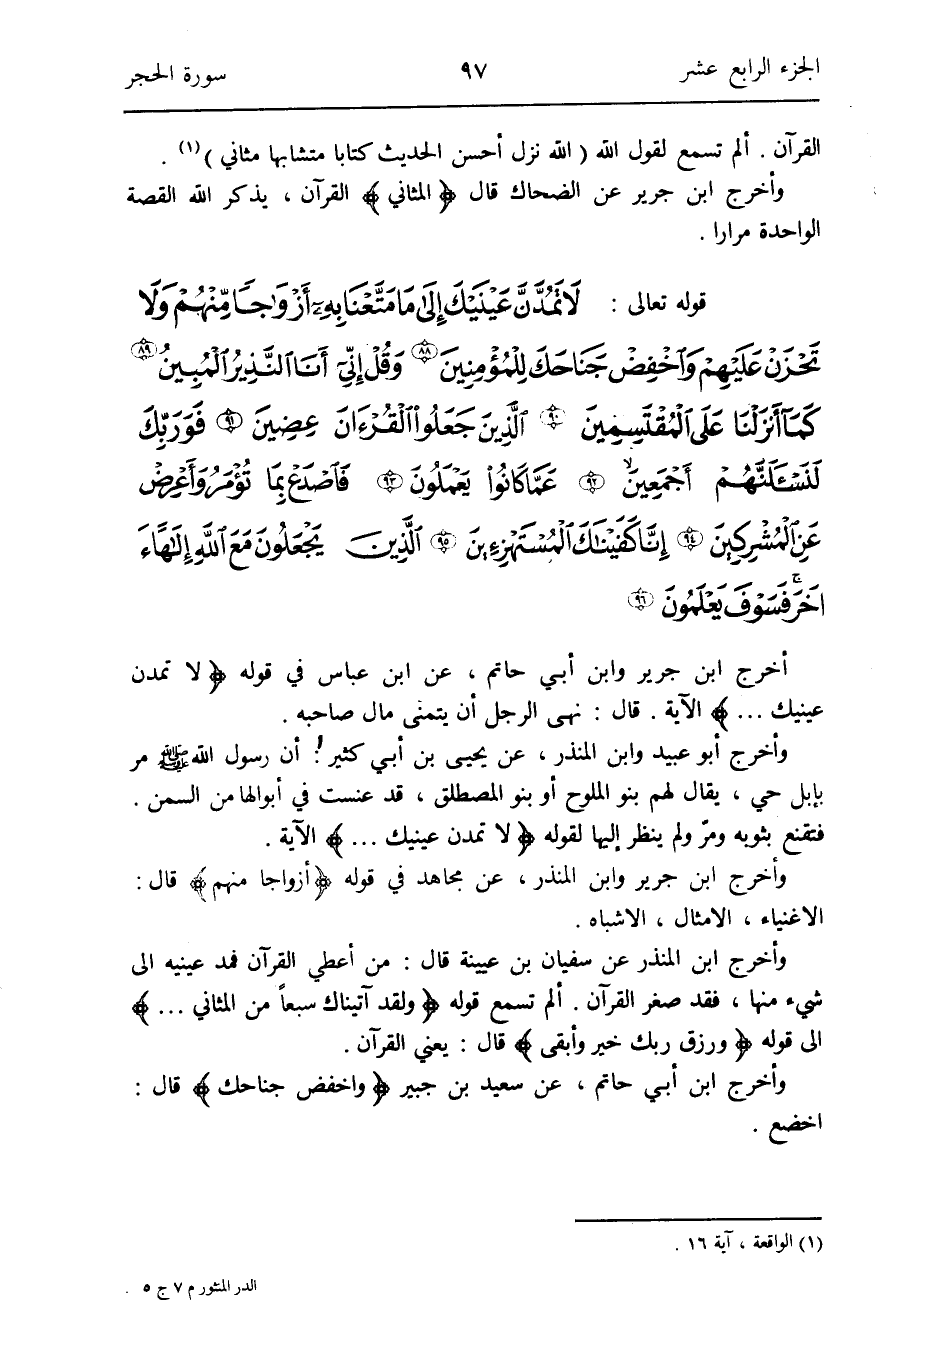 الجزء الرابع عشر ٩٧ سورة الحجر
القرآن . ألم تسمع لقول الله ( الله نزل أحسن الحديث كتابا متشابها مثاني )(١) .
وأخرج ابن جرير عن الضحاك قال ﴿ المثاني ﴾ القرآن ، يذكر الله القصة
الواحدة مرارا .
قوله تعالى : لَا تَمُدَّنَّ عَيْنَيْكَ إِلَىٰ مَا مَتَّعْنَا بِهِۦٓ أَزْوَٰجًا مِّنْهُمْ وَلَا
تَحْزَنْ عَلَيْهِمْ وَٱخْفِضْ جَنَاحَكَ لِلْمُؤْمِنِينَ ﴿٨٨﴾ وَقُلْ إِنِّىٓ أَنَا ٱلنَّذِيرُ ٱلْمُبِينُ ﴿٨٩﴾
كَمَآ أَنزَلْنَا عَلَى ٱلْمُقْتَسِمِينَ ﴿٩٠﴾ ٱلَّذِينَ جَعَلُوا۟ ٱلْقُرْءَانَ عِضِينَ ﴿٩١﴾ فَوَرَبِّكَ
لَنَسْـَٔلَنَّهُمْ أَجْمَعِينَ ﴿٩٢﴾ عَمَّا كَانُوا۟ يَعْمَلُونَ ﴿٩٣﴾ فَٱصْدَعْ بِمَا تُؤْمَرُ وَأَعْرِضْ
عَنِ ٱلْمُشْرِكِينَ ﴿٩٤﴾ إِنَّا كَفَيْنَٰكَ ٱلْمُسْتَهْزِءِينَ ﴿٩٥﴾ ٱلَّذِينَ يَجْعَلُونَ مَعَ ٱللَّهِ إِلَٰهًا ءَ
اخَرَ ۚ فَسَوْفَ يَعْلَمُونَ ﴿٩٦﴾
أخرج ابن جرير وابن أبي حاتم ، عن ابن عباس في قوله ﴿ لا تمدن
عينيك ... ﴾ الآية . قال : نهى الرجل أن يتمنى مال صاحبه .
وأخرج أبو عبيد وابن المنذر ، عن يحيى بن أبي كثير ! أن رسول الله ﷺ مر
بإبل حي ، يقال لهم بنو الملوح أو بنو المصطلق ، قد عنست في أبوالها من السمن .
فتقنع بثوبه ومرّ ولم ينظر إليها لقوله ﴿ لا تمدن عينيك ... ﴾ الآية .
وأخرج ابن جرير وابن المنذر ، عن مجاهد في قوله ﴿ أزواجا منهم ﴾ قال :
الاغنياء ، الامثال ، الاشباه .
وأخرج ابن المنذر عن سفيان بن عيينة قال : من أعطي القرآن فمد عينيه الى
شيء منها ، فقد صغر القرآن . ألم تسمع قوله ﴿ ولقد آتيناك سبعاً من المثاني ... ﴾
الى قوله ﴿ ورزق ربك خير وأبقى ﴾ قال : يعني القرآن .
وأخرج ابن أبي حاتم ، عن سعيد بن جبير ﴿ واخفض جناحك ﴾ قال :
اخضع .
(١) الواقعة ، آية ١٦ .
الدر المنثور م ٧ ج ٥ .